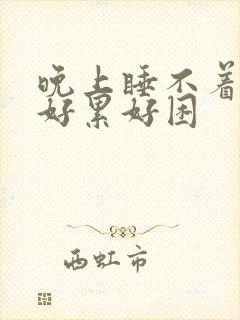 晚上睡不着
好累好困
西虹市